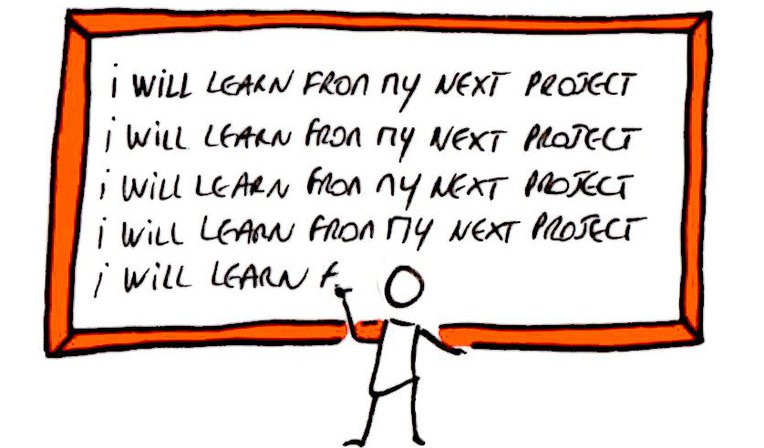 i WILL LEARN FROM MY NEXT PROJECT
i WILL LEARN FROM MY NEXT PROJECT
i WILL LEARN FROM MY NEXT PROJECT
i WILL LEARN FROM MY NEXT PROJECT
i WILL LEARN F